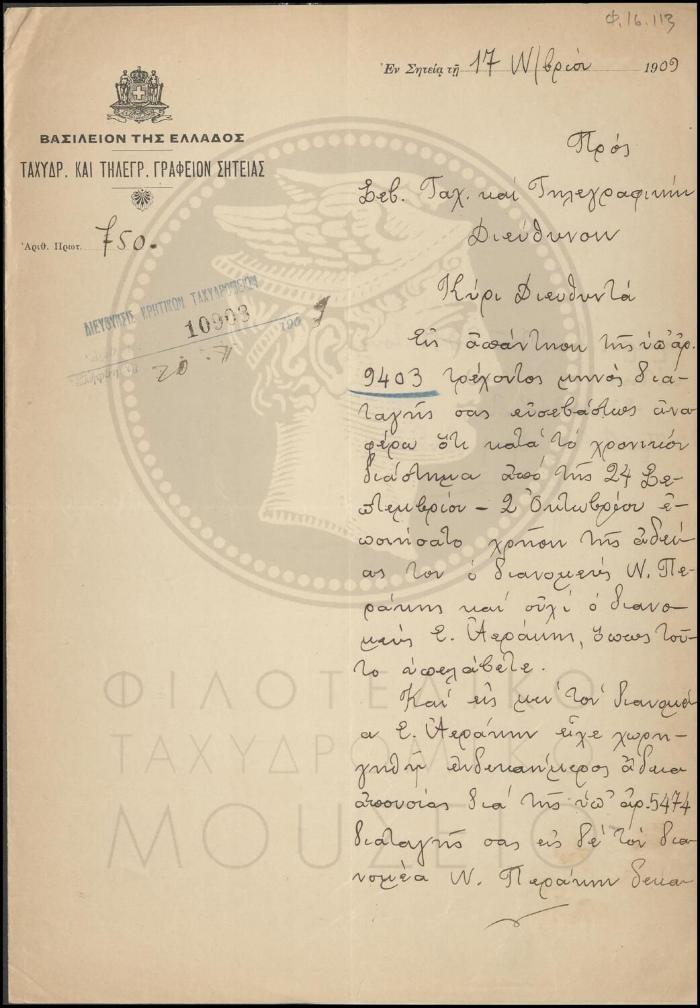 Φ.16.113
Ἐν Σητείᾳ τῇ 17 Ν/βρίου 1909
ΒΑΣΙΛΕΙΟΝ ΤΗΣ ΕΛΛΑΔΟΣ
ΤΑΧΥΔΡ. ΚΑΙ ΤΗΛΕΓΡ. ΓΡΑΦΕΙΟΝ ΣΗΤΕΙΑΣ
Ἀριθ. Πρωτ. 750.
ΔΙΕΥΘΥΝΣΙΣ ΚΡΗΤΙΚΩΝ ΤΑΧΥΔΡΟΜΕΙΩΝ
10903 190
Πρός
Σεβ. Ταχ. καί Τηλεγραφικήν
Διεύθυνσιν
Κύριε Διευθυντά
Εἰς ἀπάντησιν τῆς ὑπ' ἀρ.
9403 τρέχοντος μηνός δια-
ταγῆς σας εὐσεβάστως ἀνα-
φέρω ὅτι κατά τό χρονικόν
διάστημα ἀπό τῆς 24 Σε-
πτεμβρίου - 2 Ὀκτωβρίου ἐ-
ποιήσατο χρῆσιν τῆς ἀδεί-
ας του ὁ διανομεύς Ν. Πε-
ράκης καί οὐχί ὁ διανο-
μεύς Ε. Ἀεράκης, ὅπως τοῦ-
το ἀπελάβετε.
Καί εἰς μέν τόν διανομέ-
α Ε. Ἀεράκην εἶχε χωρη-
γηθῆ ἑνδεκαήμερος ἄδεια
ἀπουσίας διά τῆς ὑπ' ἀρ. 5474
διαταγῆς σας εἰς δέ τόν δια-
νομέα Ν. Περάκην δεκα-
ΦΙΛΟΤΕΛΙΚΟ
ΤΑΧΥΔΡΟΜΙΚΟ
ΜΟΥΣΕΙΟ